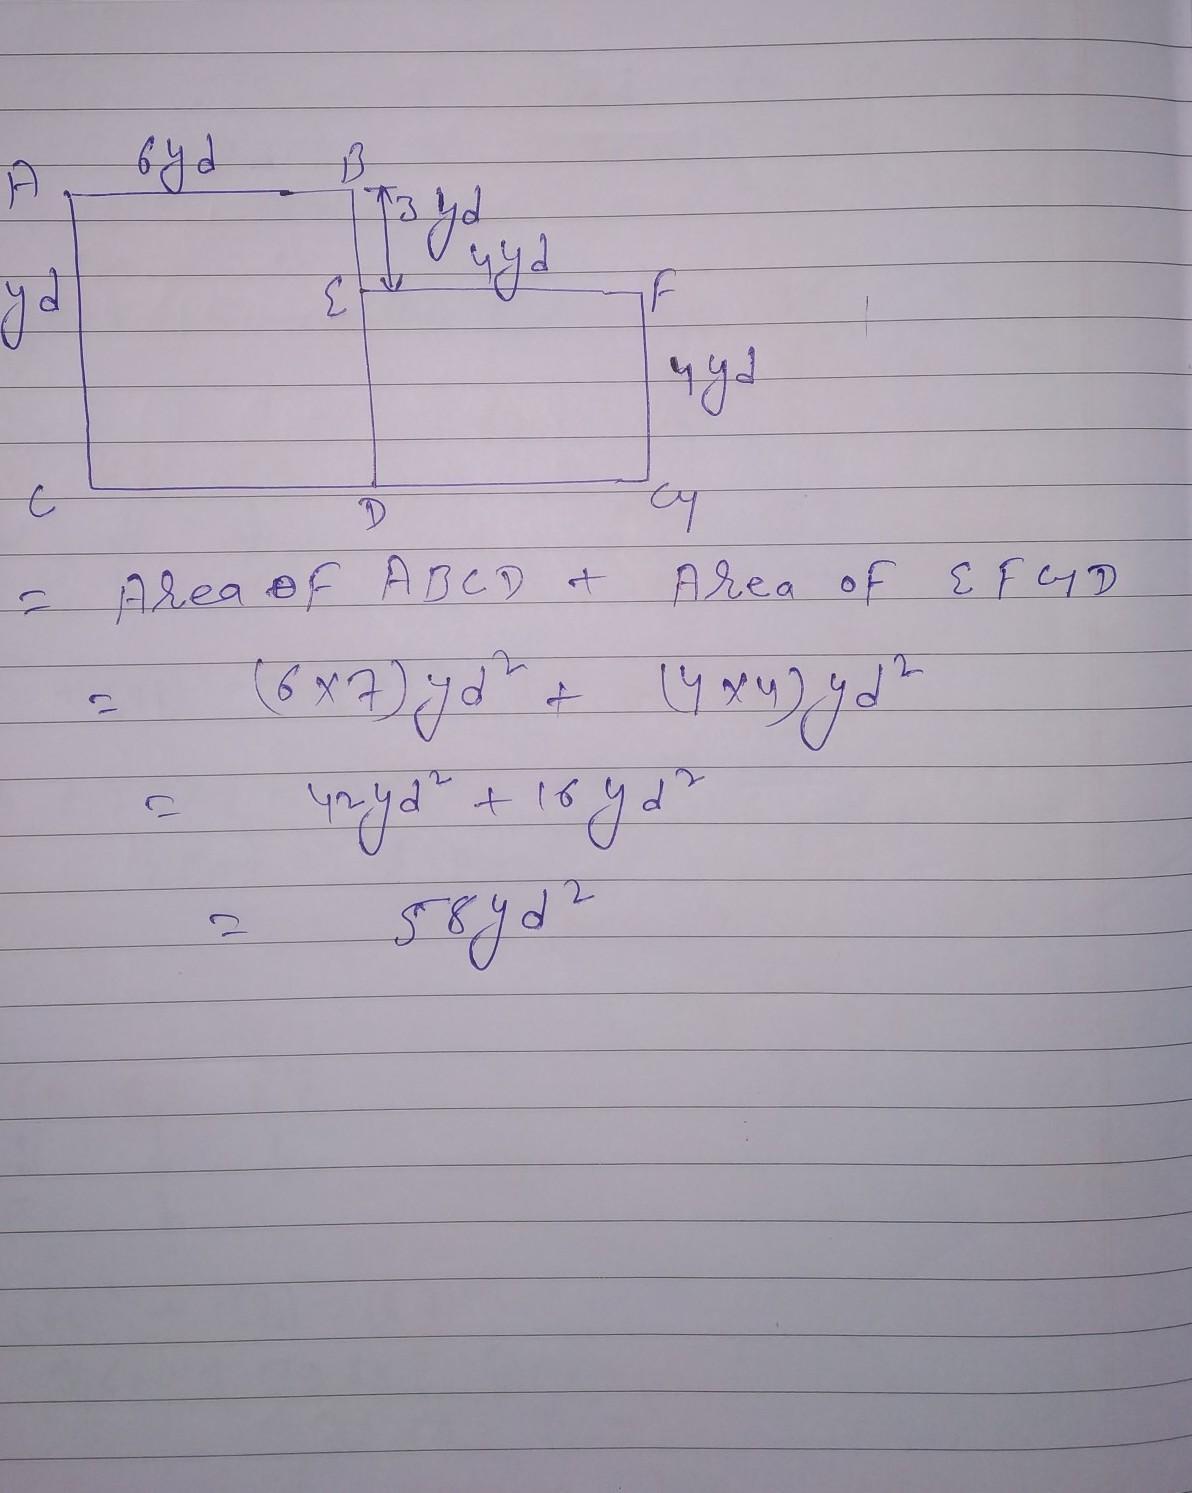 A 6yd B
3 yd
4yd
yd E F
4yd
C D G
= Area of ABCD + Area of EFGD
= (6×7)yd² + (4×4)yd²
= 42yd² + 16yd²
= 58yd²